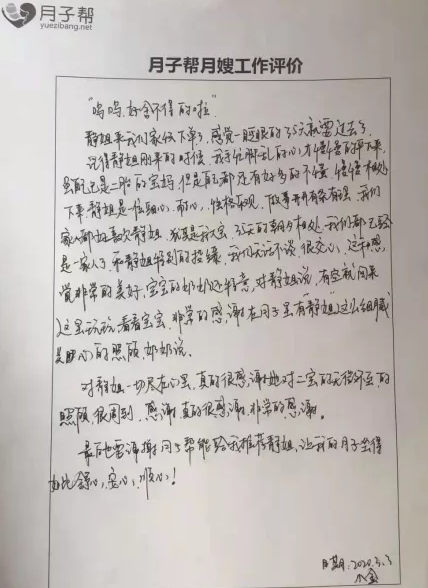 月子帮
yuezibang.net
月子帮月嫂工作评价
"呜呜，好舍不得的啦"
静姐来我们家快下单了，感觉一眨眼的35天就要过去了
记得静姐刚来的时候，我手忙脚乱的心，才慢慢的静下来
虽自己是二胎的宝妈，但是自己都还有好多的不懂，慢慢相处
下来静姐是一位细心，耐心，性格乐观，做事有条有理，我们
家人都好喜欢静姐，尤其是我大宝，35天的朝夕相处，我们都已经
是一家人了，和静姐特别的投缘，我们无话不谈，很交心，这种感
觉非常的美好，宝宝的奶奶还特意对静姐说，有空就回来
这里玩玩看看宝宝，非常的感谢在月子里有"静姐"这么细腻
的照顾奶奶说。
对静姐一切尽在心里，真的很感谢她对二宝的无微不至的
照顾，很周到，感谢，真的很感谢，非常的感谢。
最后也要谢谢月子帮能给我推荐静姐，让我的月子坐得
如此舒心，安心，顺心！
日期：2020.3.3